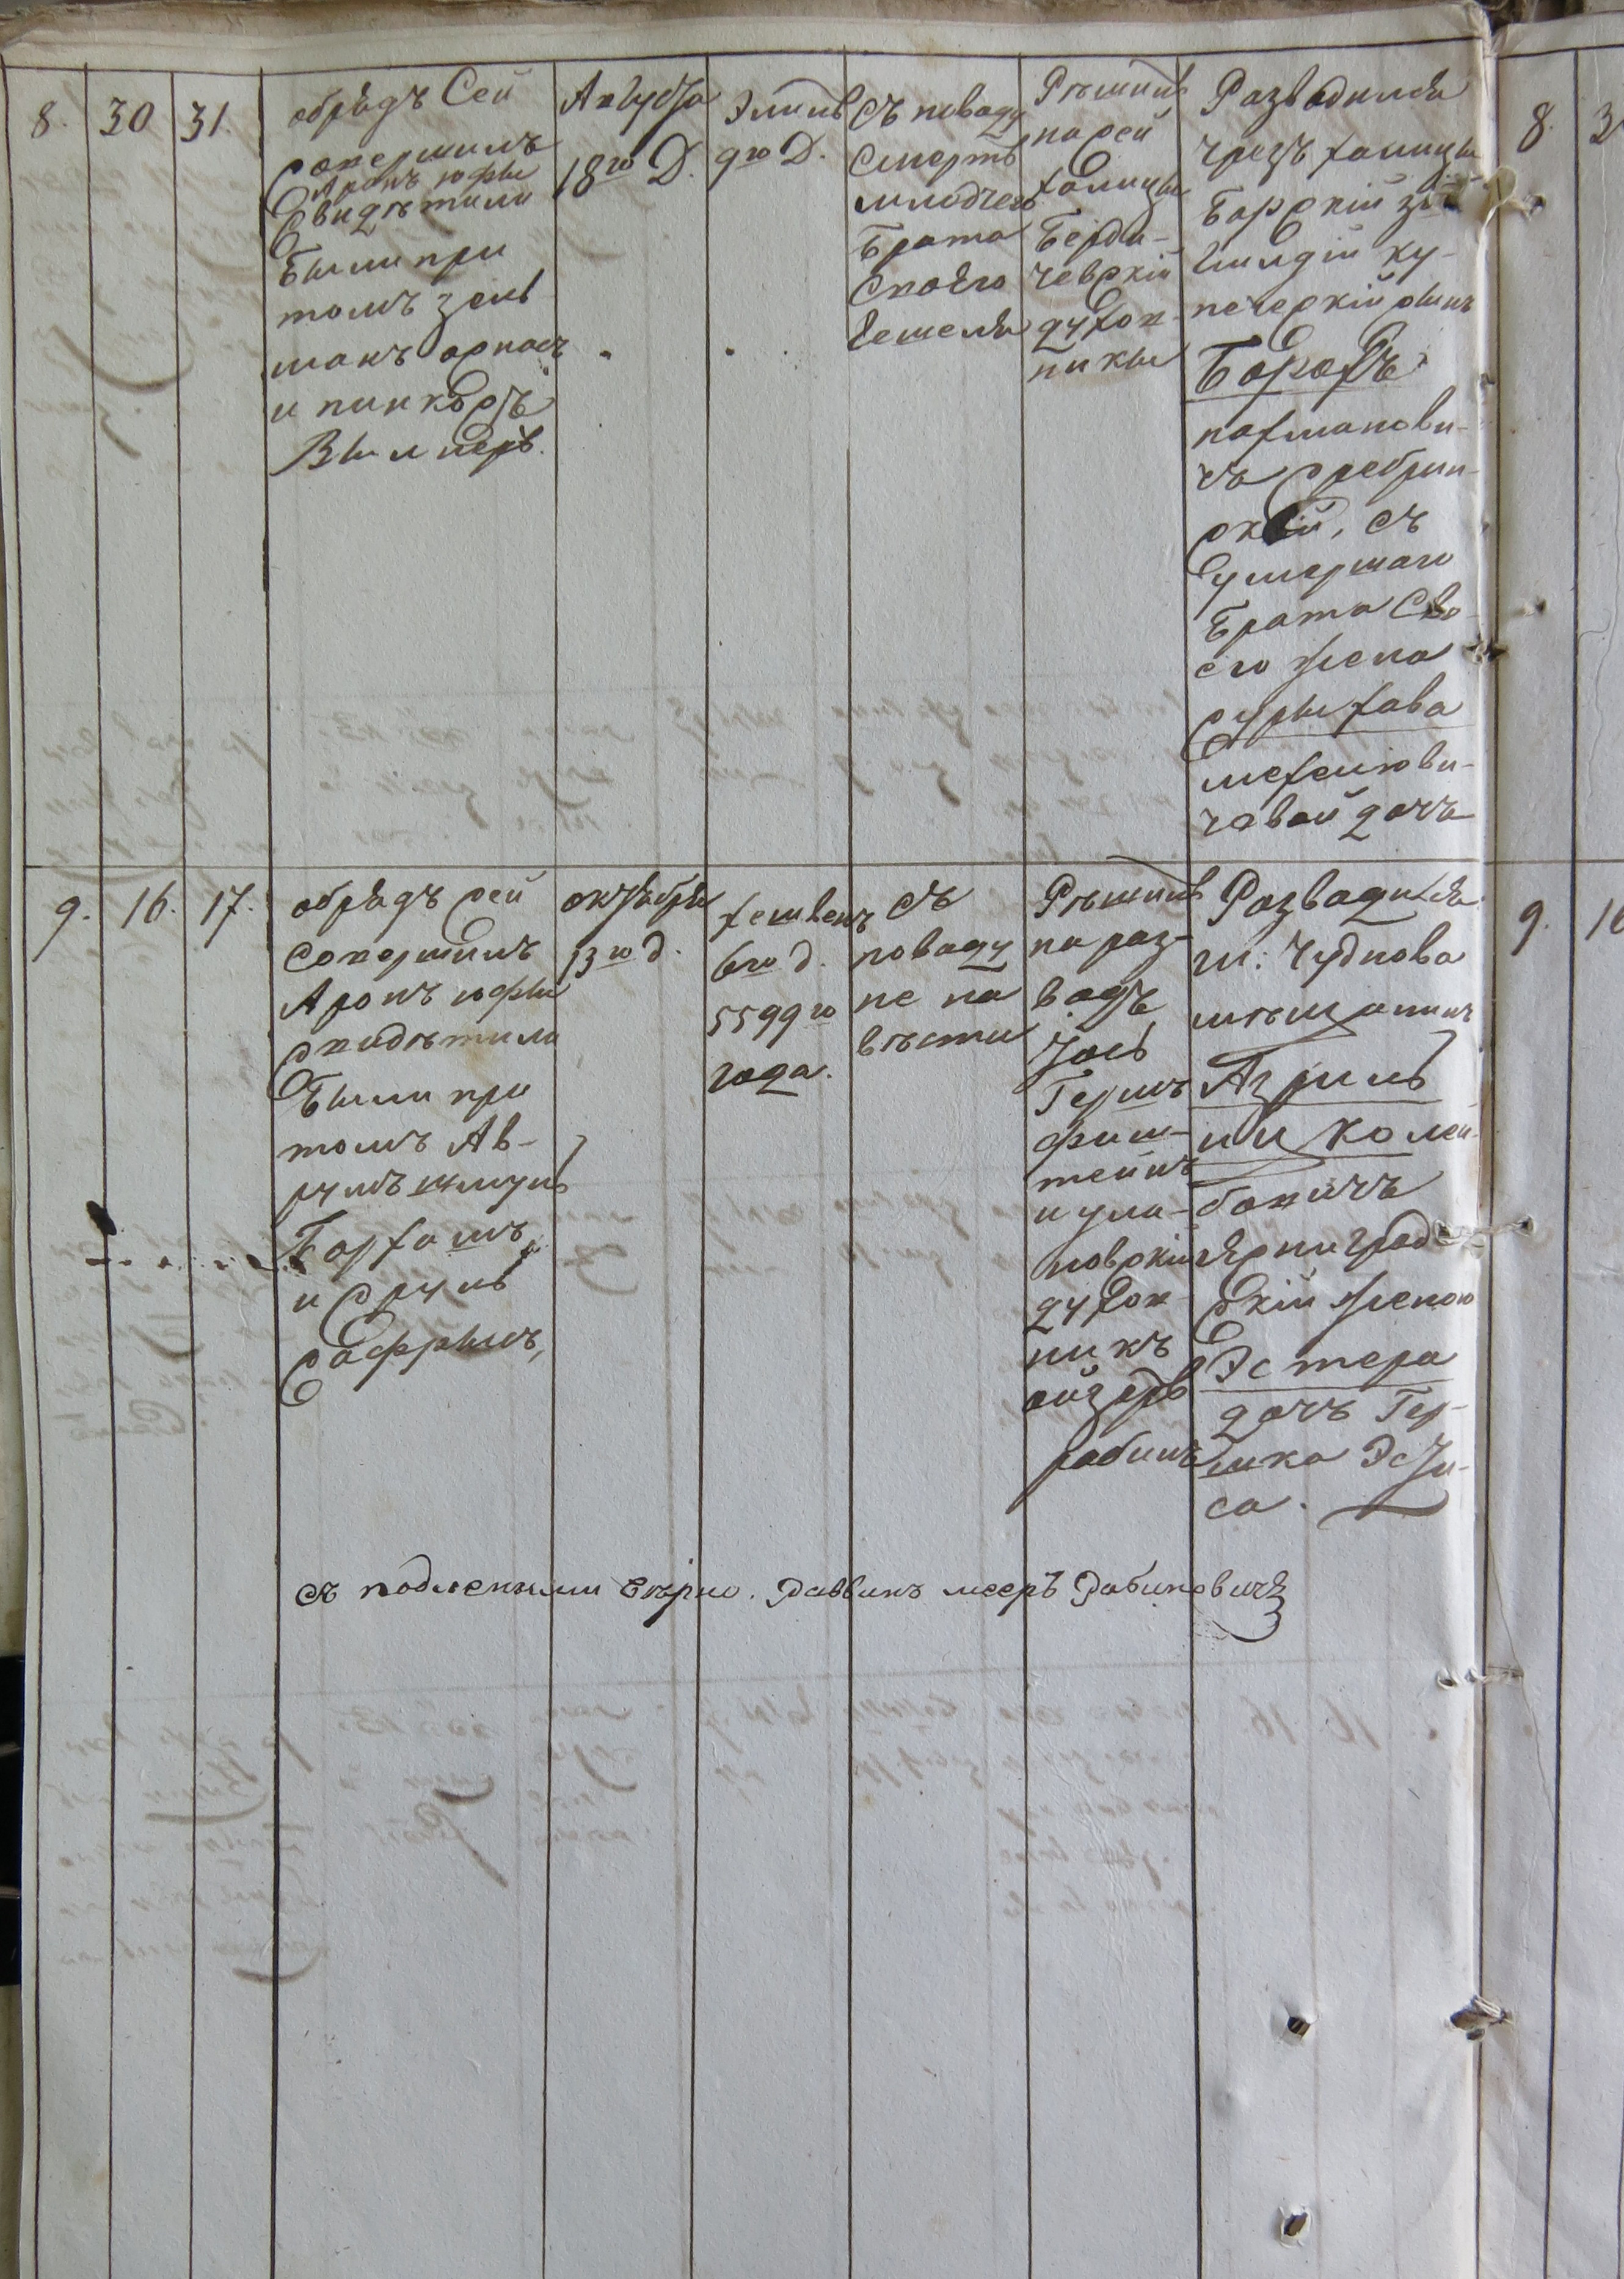 8.
30
31.
обрядъ Сей
совершилъ
Аронъ юфы
Свидѣтили
были при
томъ зель
манъ
и пинкосъ
Августа
18го Д.
9го Д.
Съ поваду
Смерть
младчего
брата
Своего
Гешеля
Рѣшили
на сей
халицы
Берди-
чевскій
духов-
ники
Разводился
чрезъ халицы
Барскій 3й
гилдіи ку-
печерскій сынъ
Борохъ
нахманови-
чъ сребрин-
скій, съ
умершаго
брата Сво-
его жена
Суры хава
мехелюви-
човай дочъ
9.
16.
17.
обрядъ сей
совершилъ
Аронъ юфы
свидѣтили
были при
томъ Ав-
румъ шмуль
Борхамъ
и Сруль
Саффынъ,
октября
13го д.
хешвенъ
6го д.
5599го
года.
съ
поваду
не на
вѣсти
Рѣшили
на раз-
водъ
Іось
Гершъ
фиш-
тейнъ
и ула-
новскій
духов-
никъ
рабинъ
Разводился
м. Чуднова
мѣщанинъ
Азриль
бовичъ
скій женою
Эстера
дочъ Гер-
шка Эсти-
са.
съ подленими верно. Раввинъ мееръ Рабиновичъ
8.
9.